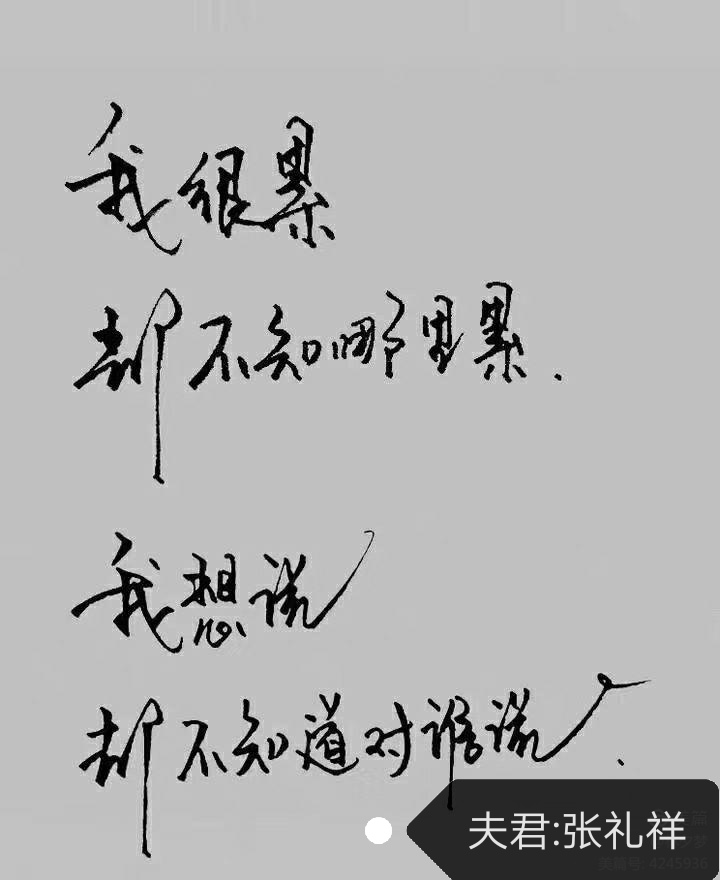 我很累
却不知哪里累.
我想说
却不知道对谁说.
夫君:张礼祥